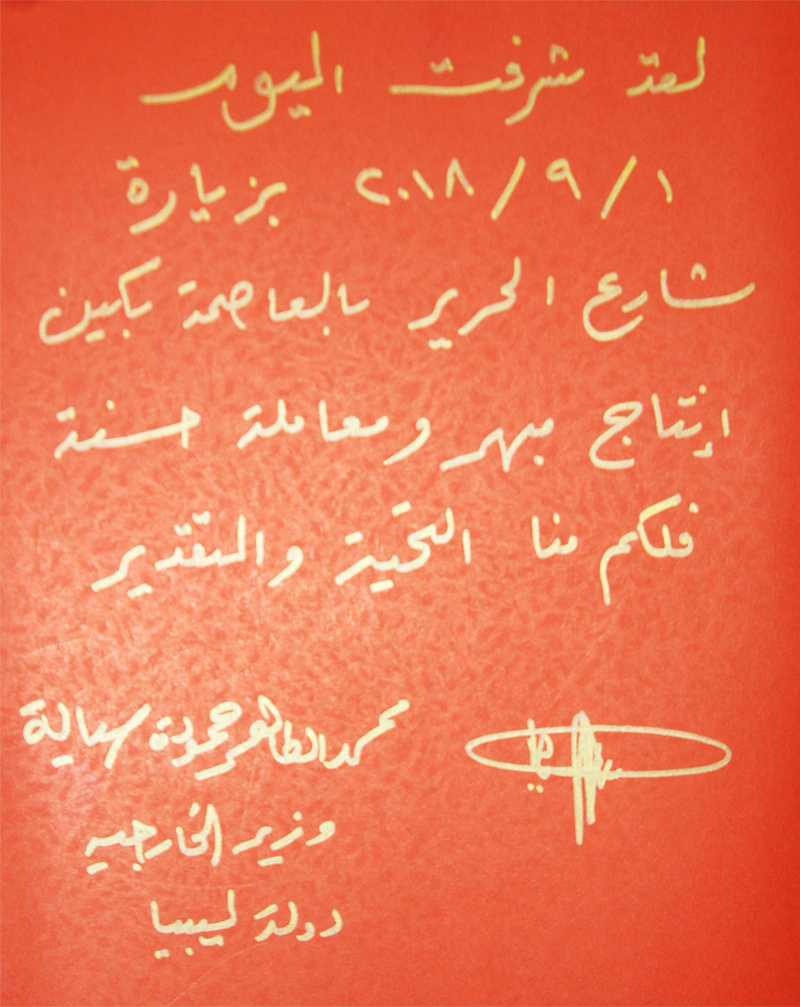 لقد شرفت اليوم
١/٩/٢٠١٨ بزيارة
شارع الحرير بالعاصمة بكين
إنتاج مبهر ومعاملة حسنة
فلكم منا التحية والتقدير
محمد الطاهر حمودة سيالة
وزير الخارجية
دولة ليبيا